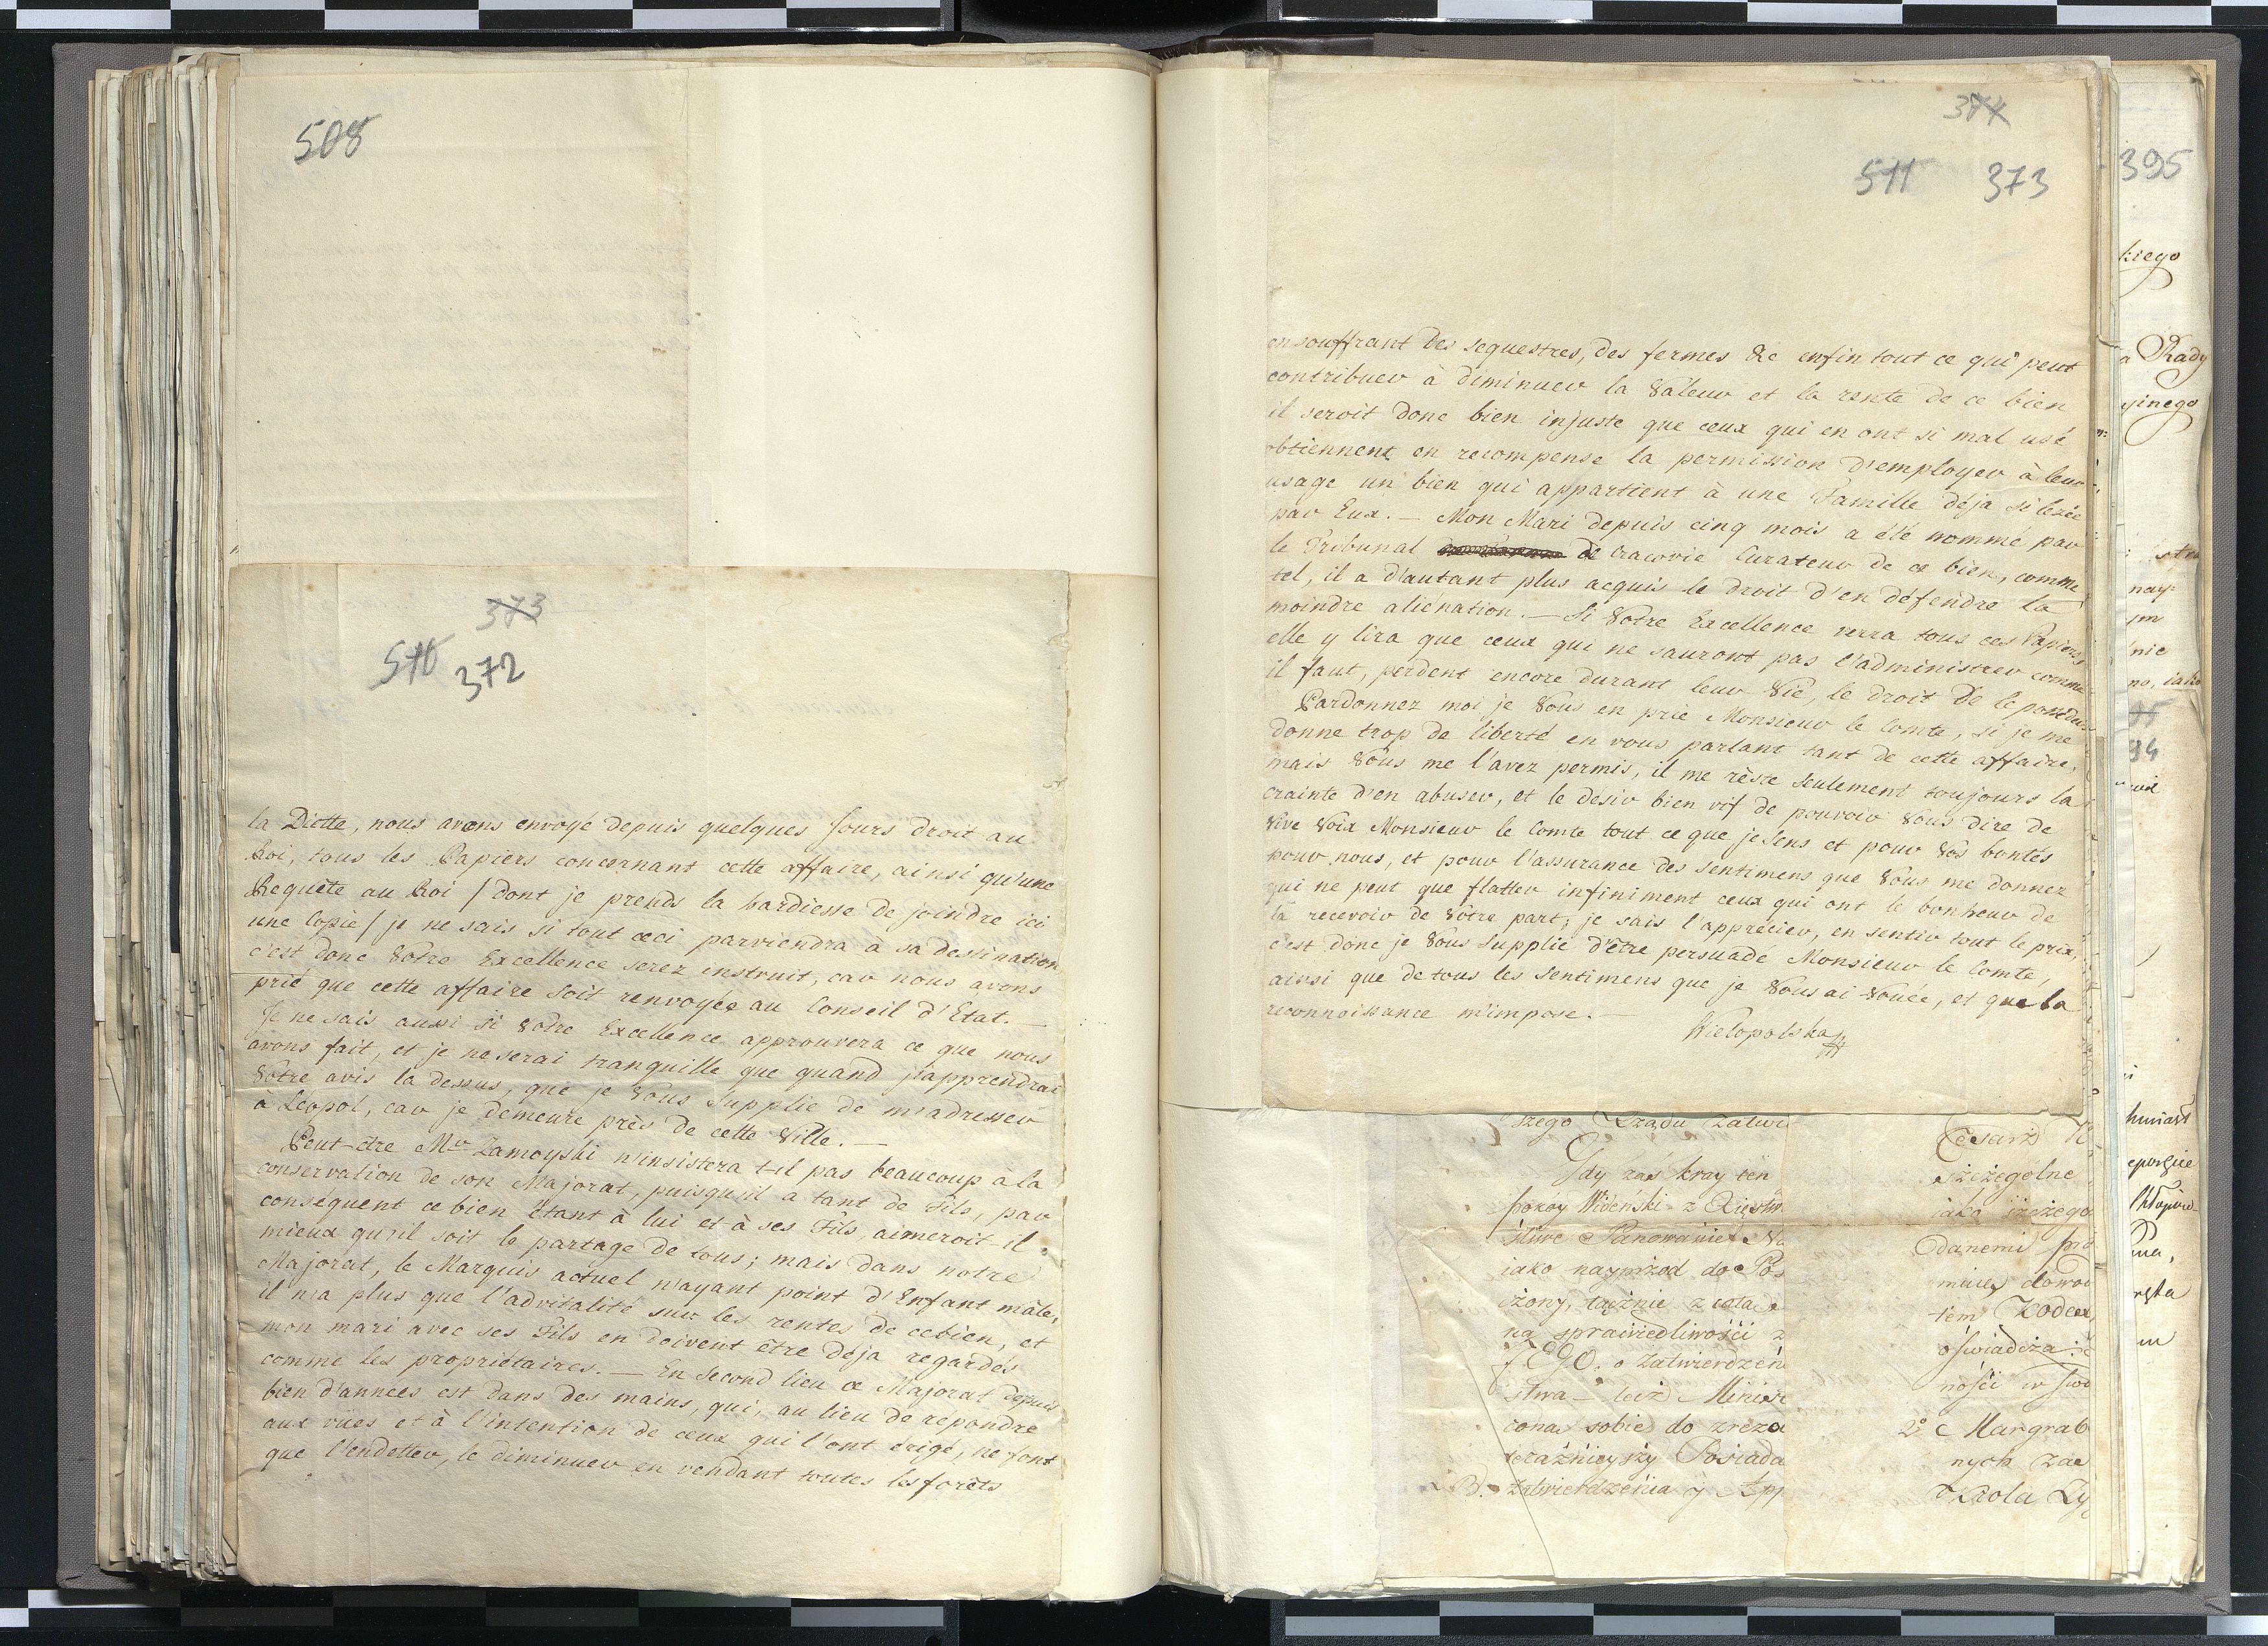 508
373
510 372
la Diette, nous avons envoyé depuis quelques Jours droit au
Roi, tous les Papiers concernant cette affaire, ainsi qu'une
Requête au Roi / dont je prends la hardiesse de joindre ici
une Copie / je ne sais si tout ceci parviendra à sa destination
c'est donc Votre Excellence serez instruit, car nous avons
prié que cette affaire soit renvoyée au Conseil d'Etat. —
Je ne sais aussi si Votre Excellence approuvera ce que nous
avons fait, et je ne serai tranquille que quand j'apprendrai
Vôtre avis la dessus, que je Vous supplie de m'adresser
à Léopol, car je demeure près de cette Ville. —
Peut-etre Mr Zamoyski n'insistera t-il pas beaucoup à la
conservation de son Majorat, puisqu'il a tant de Fils, par
conséquent ce bien étant à lui et à ses Fils, aimeroit-il
mieux qu'il soit le partage de tous; mais dans notre
Majorat, le Marquis actuel n'ayant point d'Enfant mâle,
il n'a plus que l'advitalité sur les rentes de ce bien, et
mon mari avec ses Fils en doivent être déja regardés
comme les propriétaires. — En Second lieu ce Majorat depuis
bien d'années est dans des mains, qui, au lieu de répondre
aux vües et à l'intention de ceux qui l'ont érigé, ne font
que l'endetter, le diminuer en vendant toutes les forêts
374
511 373
en souffrant des sequestres, des fermes &c enfin tout ce qui peut
contribuer à diminuer la Valeur et la rente de ce bien
il seroit donc bien injuste que ceux qui en ont si mal usé
obtiennent en recompense la permission d'employer à leur
usage un bien qui appartient à une Famille déja si lezée
par Eux. — Mon Mari depuis cinq mois a été nommé par
le Tribunal de Cracovie Curateur de ce bien, comme
tel, il a d'autant plus acquis le droit d'en défendre la
moindre aliénation. — Si Votre Excellence verra tous ces Papiers
elle y lira que ceux qui ne sauront pas l'administrer comme
il faut, perdent encore durant leur Vie, le droit de le posseder
Pardonnez moi je Vous en prie Monsieur le Comte, si je me
donne trop de liberté en vous parlant tant de cette affaire,
mais Vous me l'avez permis, il me rèste seulement toujours la
crainte d'en abuser, et le desir bien vif de pouvoir Vous dire de
Vive Voix Monsieur le Comte tout ce que je Sens et pour Vos bontés
pour nous, et pour l'assurance des sentimens que Vous me donnez
qui ne peut que flatter infiniment ceux qui ont le bonheur de
la recevoir de Vôtre part; je sais l'apprécier, en sentir tout le prix,
c'est donc je Vous supplie d'être persuadé Monsieur le Comte,
ainsi que de tous les Sentimens que je Vous ai Vouée, et que la
reconnoissance m'impose. —
Wielopolska
szego Rządu zatwi
Gdy zaś kray ten
pokóy Wideński z Xięstw
Panowanie
iako nayprzod do Pos
na sprawiedliwości z
JEGO. o Zatwierdzen
stwa — Minist
cona sobie do zreza
teraźnieyszy Posiada
zatwierdzenia y App
Cesarz
szczegolne
danemi
tem
oświadcza
2° Margrab
nych
Krola Zy
395
kiego
a Rady
yinego
nay
nie
no, iako
94